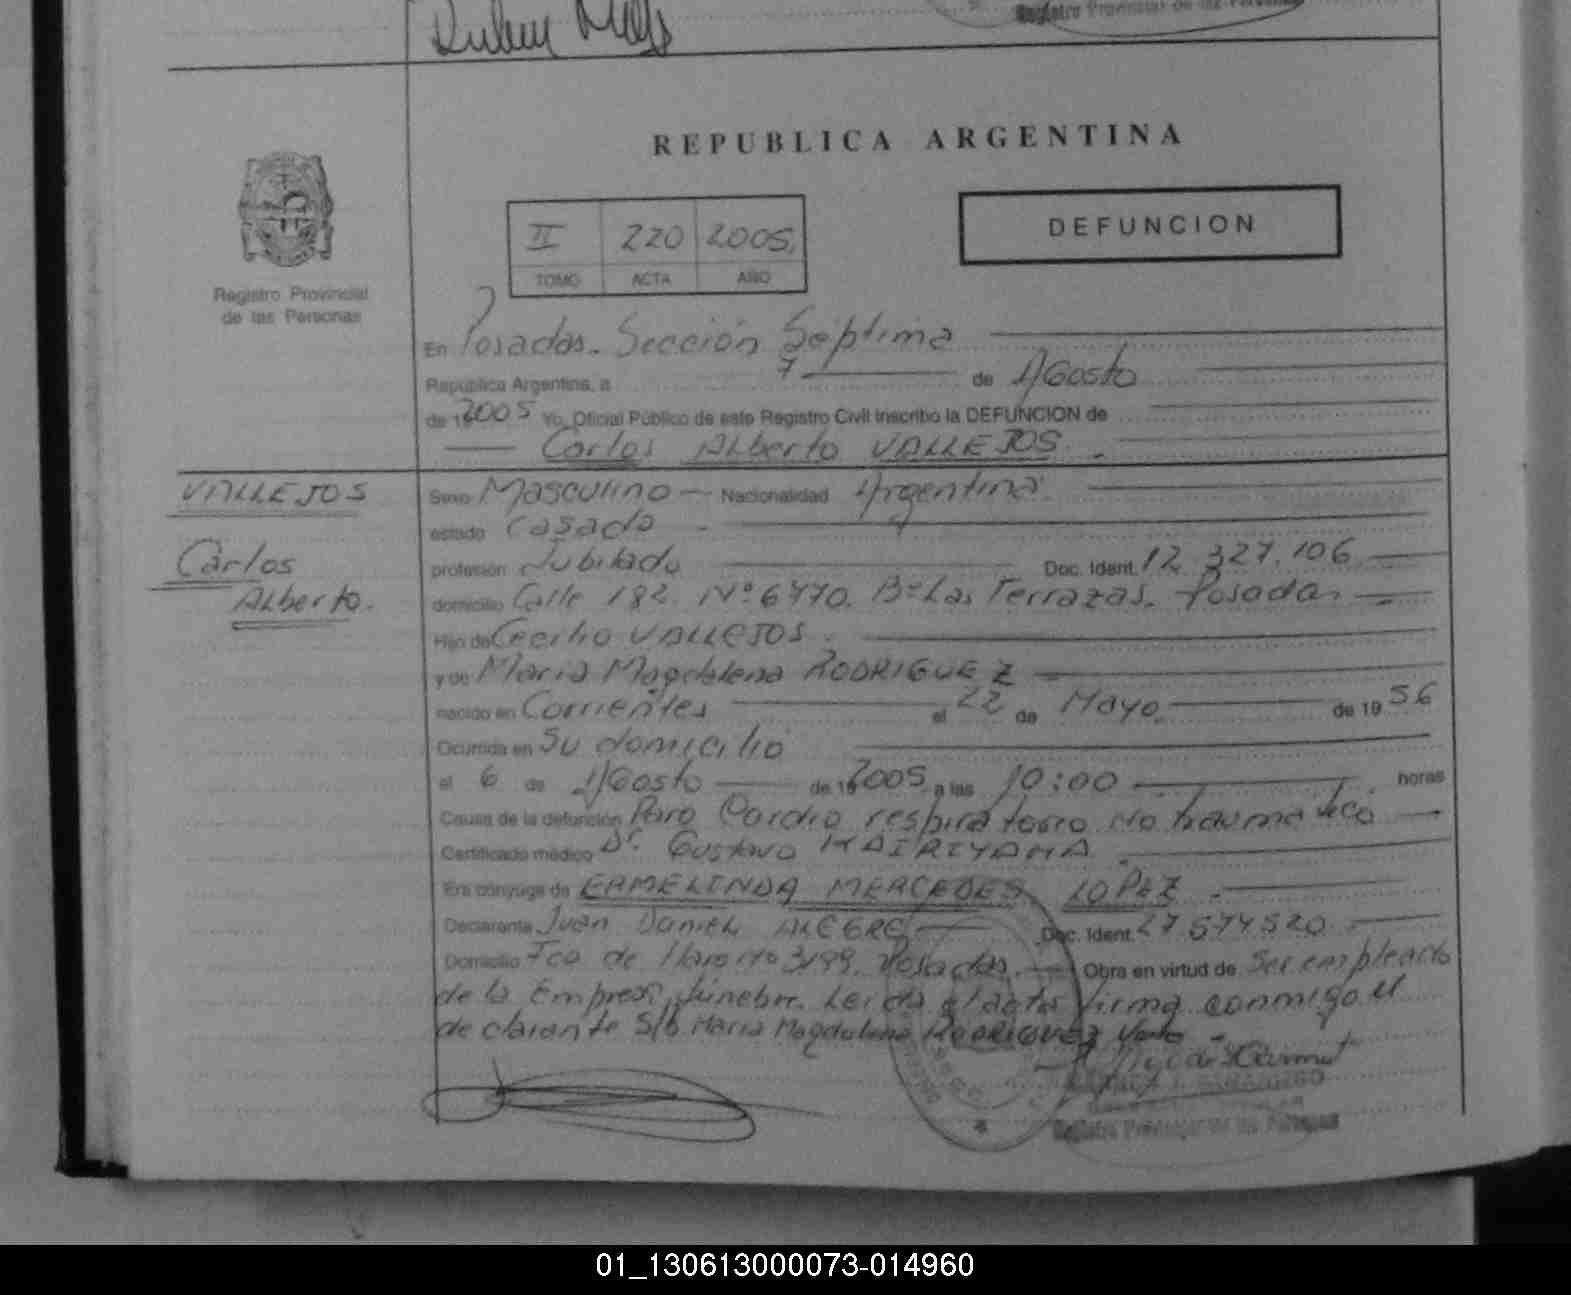 Registro Provincial de las Personas
REPUBLICA ARGENTINA
II 220 2005
TOMO ACTA AÑO
DEFUNCION
Registro Provincial
de las Personas
En Posadas. Sección Séptima
República Argentina, a 7 de Agosto
de 2005 Yo, Oficial Público de este Registro Civil inscribo la DEFUNCION de
Carlos Alberto VALLEJOS.
VALLEJOS
Carlos
Alberto.
Sexo Masculino Nacionalidad Argentina
estado Casado
profesión Jubilado Doc. Ident. 12.327.106
domicilio Calle 182 Nº 6470. Bº Las Terrazas. Posadas
Hijo de Cecilio VALLEJOS
y de Maria Magdalena RODRIGUEZ
nacido en Corrientes el 22 de Mayo de 1956
Ocurrida en Su domicilio
el 6 de Agosto de 2005 a las 10:00 horas
Causa de la defunción Paro Cardio respiratorio No traumatico
Certificado médico Dr. Gustavo
Era cónyuge de ERMELINDA MERCEDES LOPEZ
Declarante Juan Daniel ALEGRE Doc. Ident. 27.574.520
Domicilio Fco de Haro Nº 3199. Posadas. Obra en virtud de Ser empleado
de la Empresa fúnebre. Leida el acta firma conmigo el
declarante S/b Maria Magdalena RODRIGUEZ Vale
Registro Provincial de las Personas
01_130613000073-014960